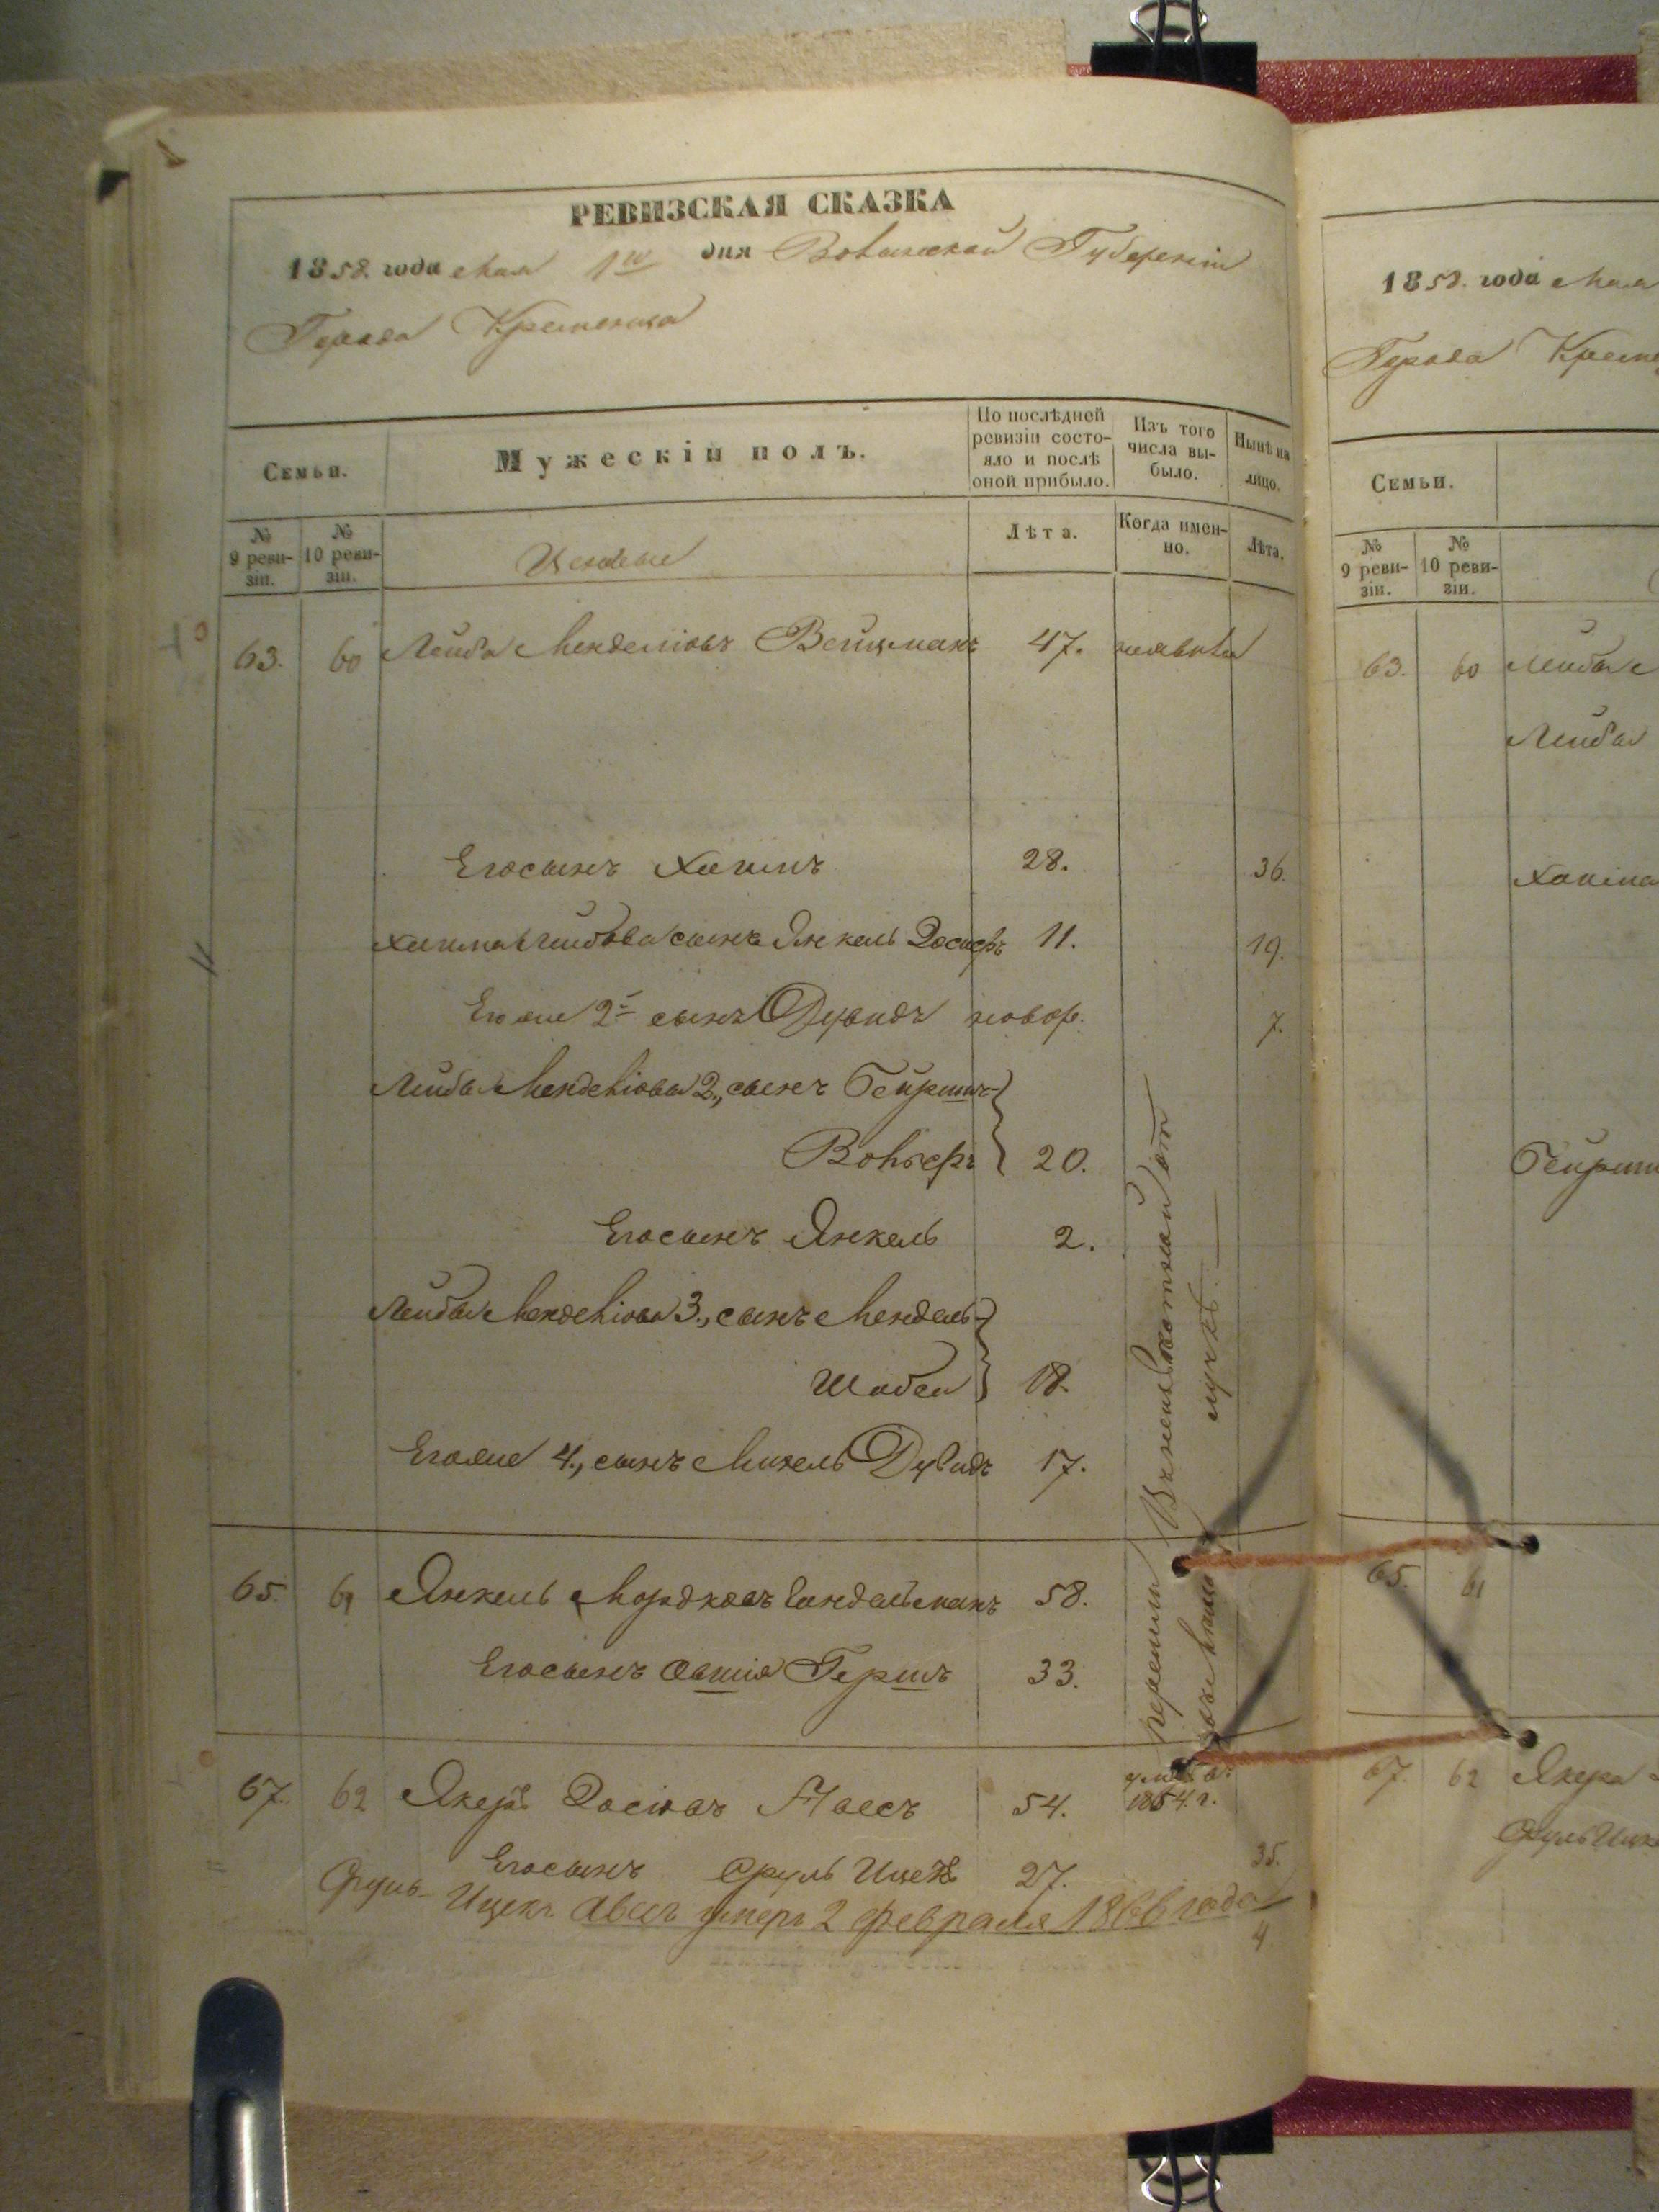 РЕВИЗСКАЯ СКАЗКА
1858 года мая 1го дня Волынской Губерніи
Города Кременца
Семьи.
Мужескій полъ.
По послѣдней ревизіи состояло и послѣ оной прибыло.
Изъ того числа выбыло.
Нынѣ на лицо.
№ 9 ревизіи.
№ 10 ревизіи.
Лѣта.
Когда именно.
Лѣта.
63. 60 Лейба Менделіовъ Вейцманъ 47.
Его сынъ Хаимъ 28. 36.
Хаима Лейбова сынъ Янкель Іосифъ 11. 19.
Его же 2й сынъ Дувидъ новор. 7.
Лейбы Менделіова 2, сынъ Гейршъ
Вольфъ 20.
Его сынъ Янкель 2.
Лейбы Менделіова 3, сынъ Мендель
Шабса 18.
Его же 4, сынъ Михель Дувидъ 17.
65. 61 Янкель Мордковъ 58.
Его сынъ Овшія Гершъ 33.
67. 62 Іосіовъ 54. 1854 г.
Его сынъ Сруль Ицекъ 27. 35.
Сруль-Ицекъ Авесъ умеръ 2 февраля 1866 года
4
1858. года мая
Города Креме
Семьи.
№ 9 ревизіи.
№ 10 ревизіи.
63. 60 Лейбы
Лейбы
Хаима
Гейрш
65. 61
67. 62
Сруль Ицк